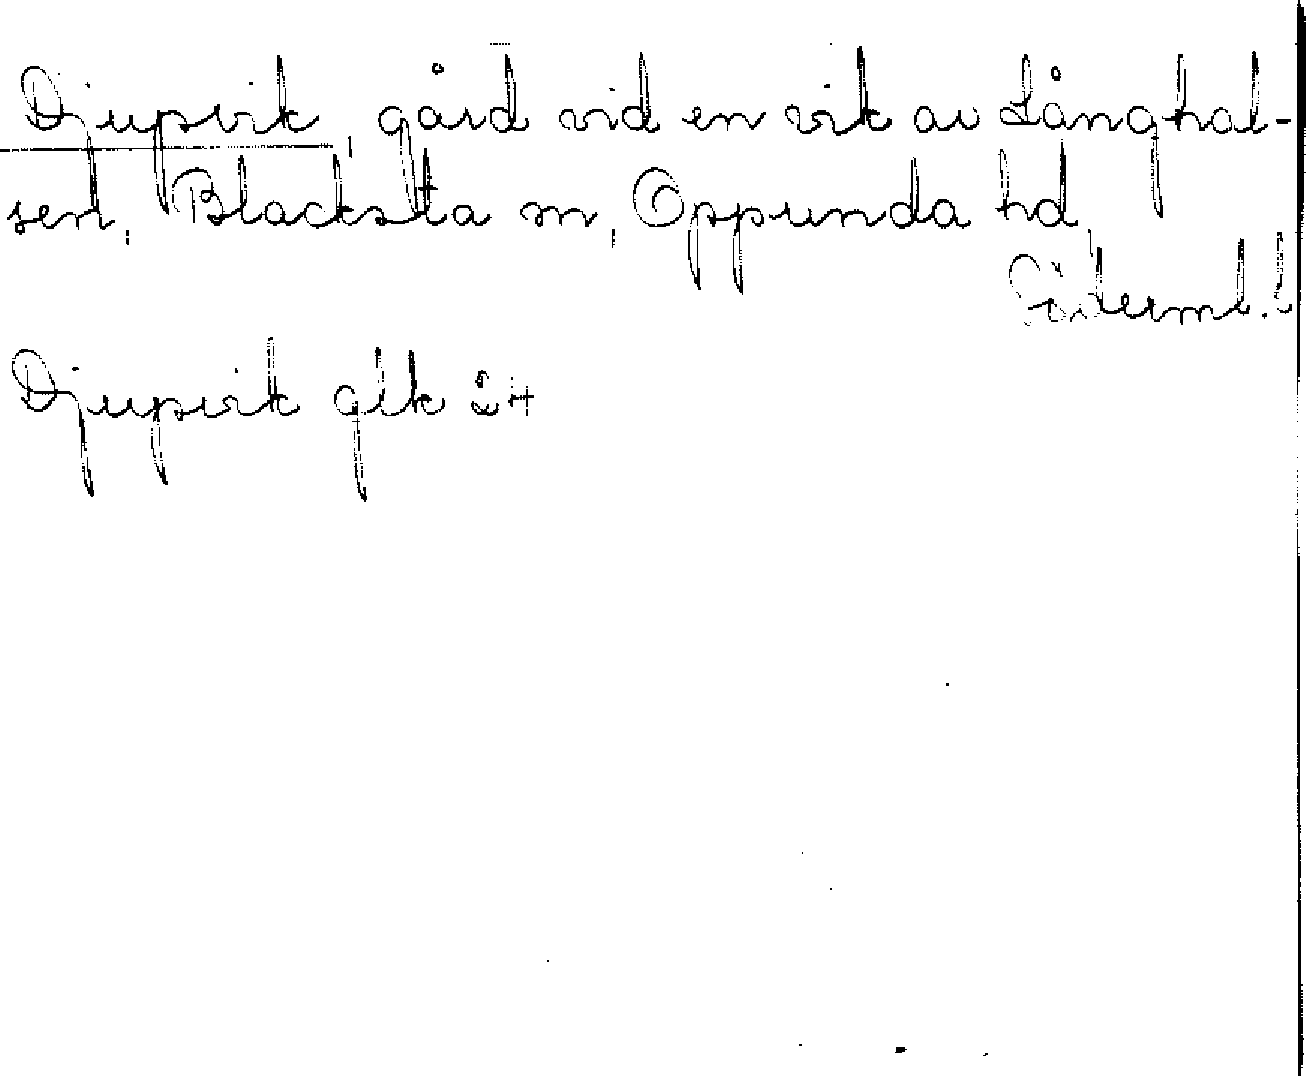 Djupvik, gård vid en vik av Långhal-
sen, Blacksta sn, Oppunda hd,
Söderml.
Djupvik glk 24